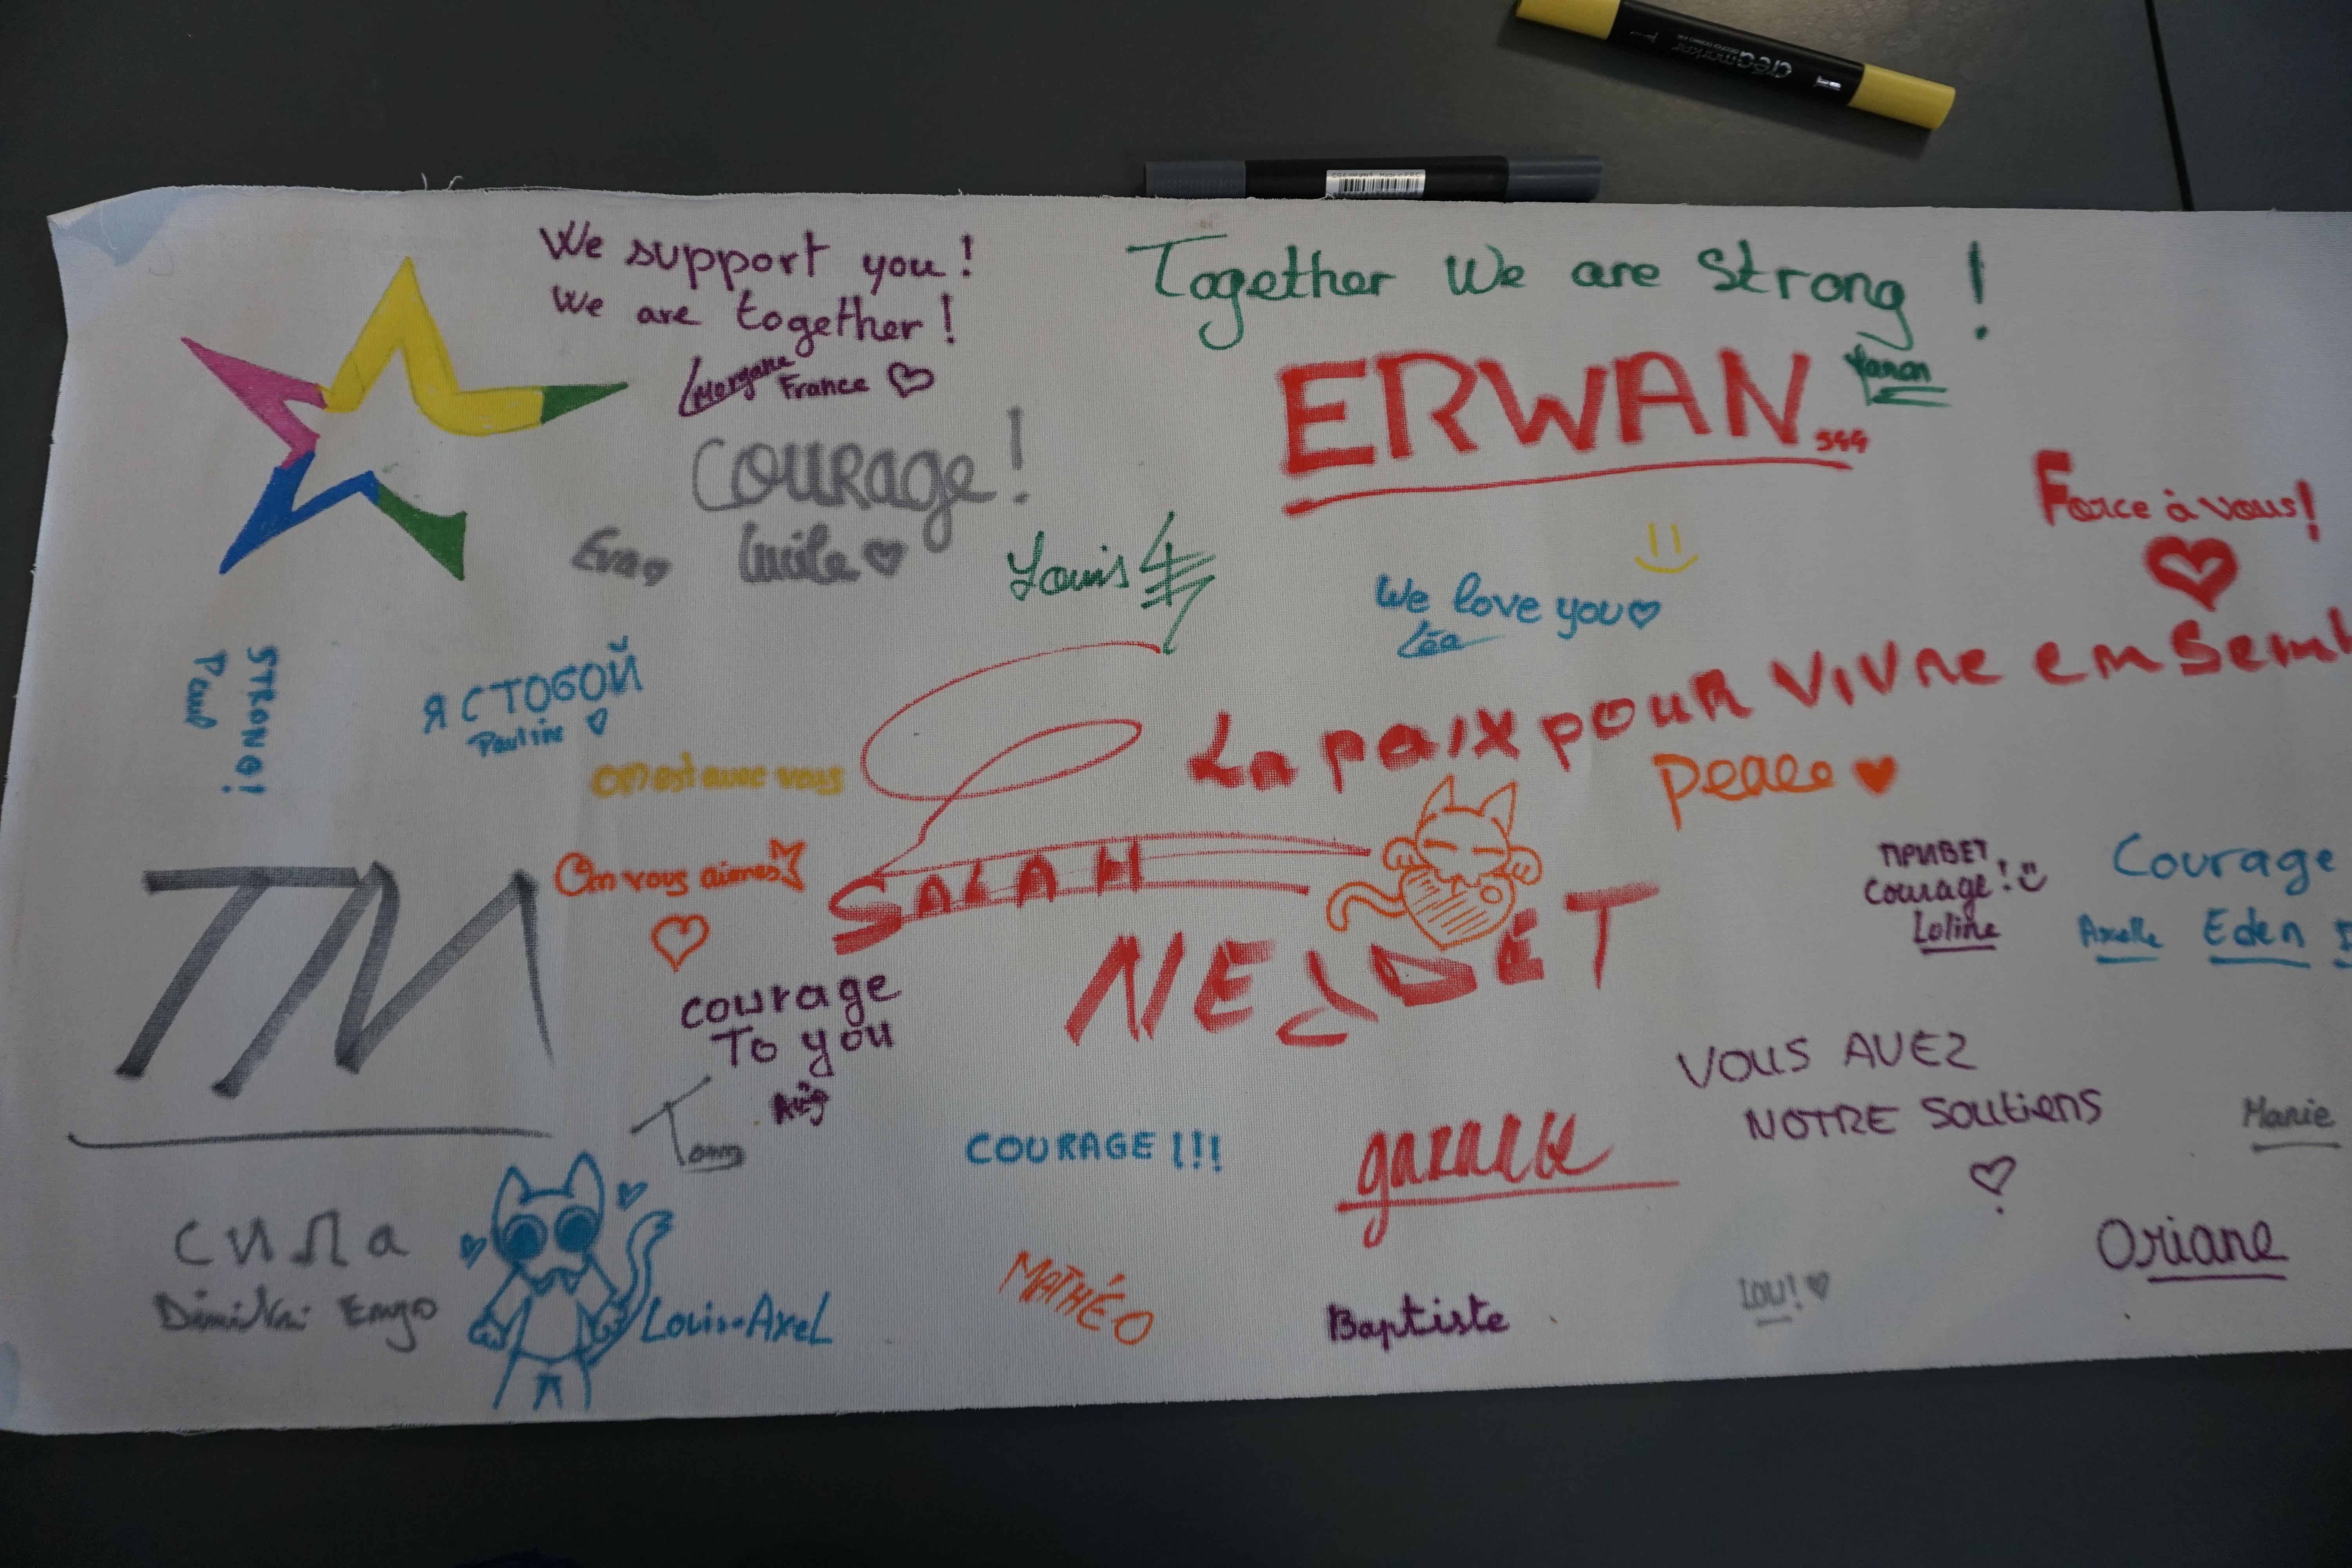 We support you !
We are together !
Morgane
France
Together We are Strong !
ERWAN
Courage !
Eva
Lucile
Louis
Force à vous !
We love you
Léa
STRONG !
Paul
Я С ТОБОЙ
Pauline
La paix pour vivre ensembl
on est avec vous
Peace
On vous aimes
SALAH
NEJDET
TM
ПРИВЕТ
Courage !
Loline
Courage
Axelle Eden
courage
To you
Tom
COURAGE !!!
VOUS AVEZ
NOTRE Soutiens
Marie
сила
Dimitri Enzo
Louis-Axel
MATHÉO
Baptiste
Lou !
Oriane
creamarker